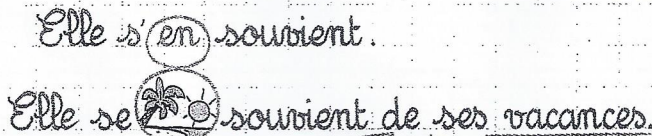 Elle s'en souvient.
Elle se souvient de ses vacances.